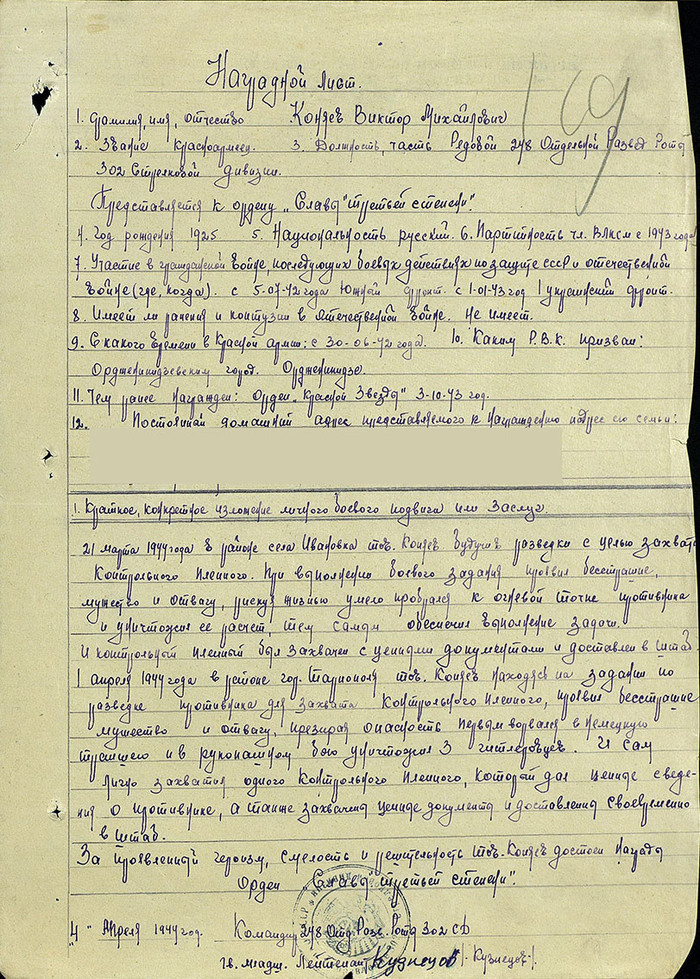 Наградной лист.
1. Фамилия, имя, отчество Коняев Виктор Михайлович
2. Звание красноармеец. 3. Должность, часть Редовой 248 Отдельной Развед Роты
302 Стрелковой дивизии.
Представляется к ордену „Славы" третьей степени".
4. Год рождения 1925 5. Национальность русский. 6. Партийность чл. ВЛКСМ с 1943 года
7. Участие в гражданской войне, последующих боевых действиях по защите СССР и отечественной
войне (где, когда). с 5-07-42 года Южный фронт. с 1-01-43 год 1 украинский фронт.
8. Имеет ли ранения и контузии в отечественной войне. Не имеет.
9. С какого времени в Красной армии: с 30-06-42 года. 10. Каким Р.В.К. призван:
Орджоникидзевским город. Орджоникидзе.
11. Чем ранее награжден: орден „Красной Звезды" 3-10-43 год.
12. Постоянный домашний адрес представляемого к награждению и адрес его семьи:
1. Краткое, конкретное изложение личного боевого подвига или заслуг.
21 марта 1944 года в районе села Ивановка тов. Коняев будучи в разведке с целью захвата
контрольного пленного. При выполнении боевого задания проявил бесстрашие,
мужество и отвагу, рискуя жизнью умело пробрался к огневой точке противника
и уничтожил ее расчет, тем самым обеспечил выполнение задачи.
И контрольный пленный был захвачен с ценными документами и доставлен в штаб
1 апреля 1944 года в районе гор. Тарнополя тов. Коняев находясь на задании по
разведке противника для захвата контрольного пленного, проявил бесстрашие
мужество и отвагу, презирая опасность первым ворвался в немецкую
траншею и в рукопашном бою уничтожил 3 гитлеровцев. И сам
лично захватил одного контрольного пленного, который дал ценные сведе-
ния о противнике, а также захвачены ценные документы и доставлены своевременно
в штаб.
За проявленный героизм, смелость и решительность тов. Коняев достоен награды
Орден „Славы третьей степени".
„4" Апреля 1944 год. Командир 248 Отд. Разв. Роты 302 СД
Гв. младш. Лейтенант Кузнецов /-Кузнецов-/.